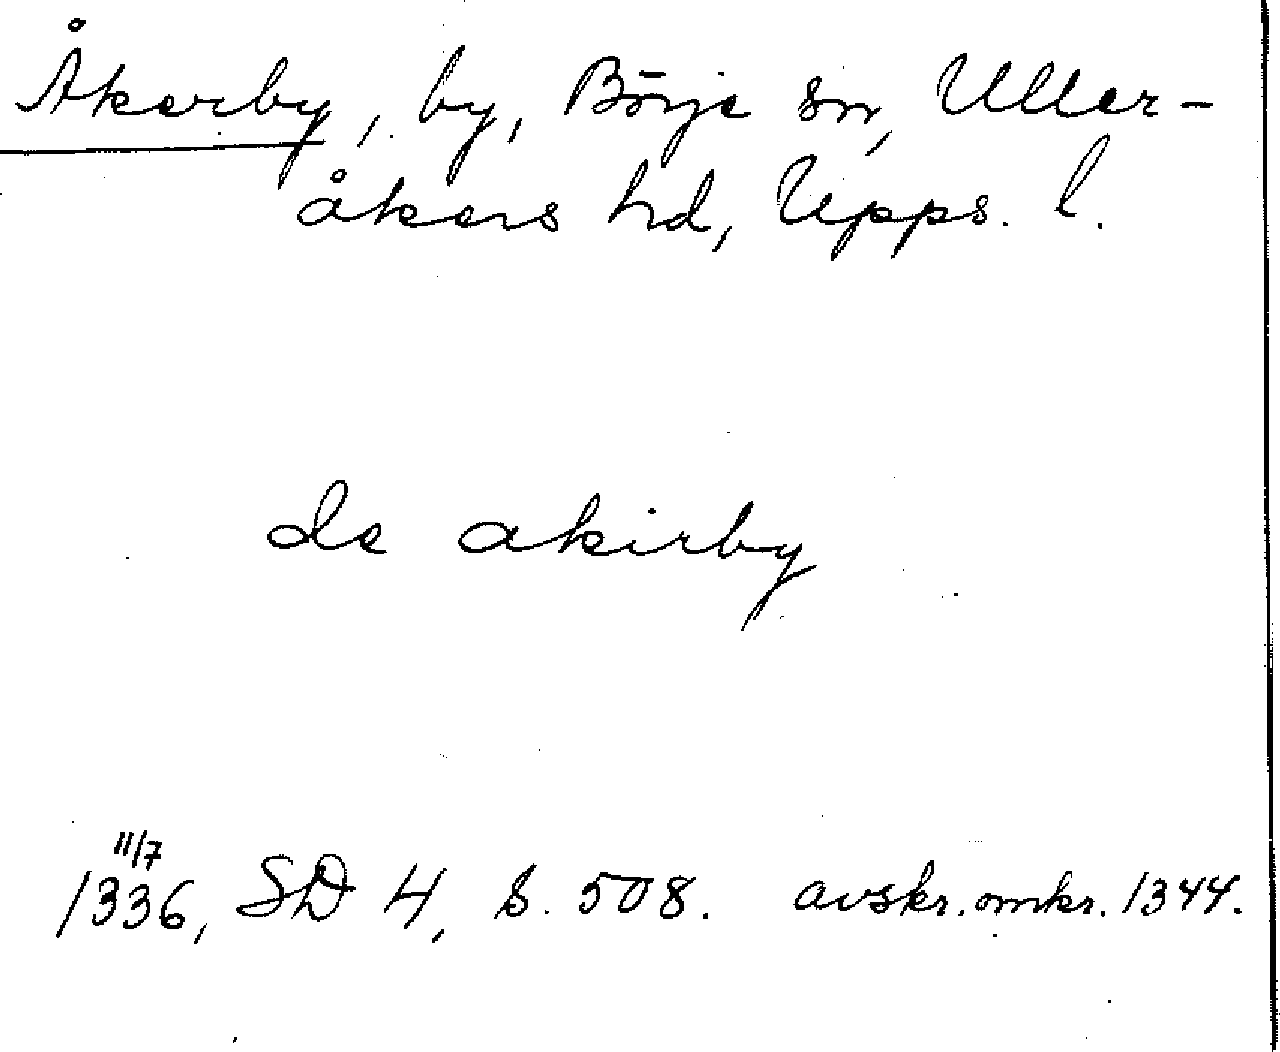 Åkerby, by, Börje sn, Uller-
åkers hd, Upps. l.
de akirby
11/7
1336, SD 4, s. 508. avskr. omkr. 1344.